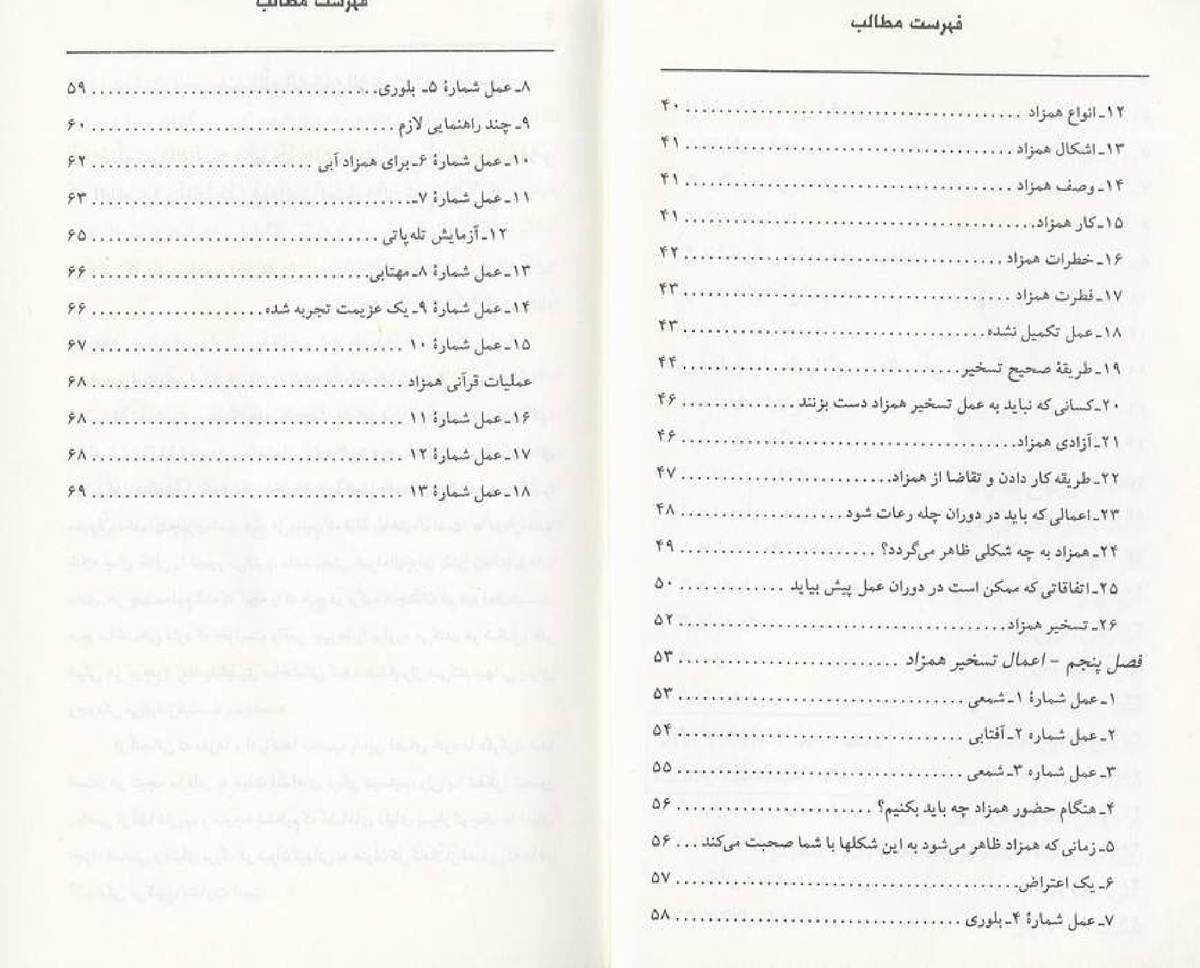 فهرست مطالب
۱۲ـ انواع همزاد ........................................ ۴۰
۱۳ـ اشکال همزاد ........................................ ۴۱
۱۴ـ وصف همزاد ........................................ ۴۱
۱۵ـ کار همزاد ........................................ ۴۱
۱۶ـ خطرات همزاد ........................................ ۴۲
۱۷ـ فطرت همزاد ........................................ ۴۳
۱۸ـ عمل تکمیل نشده ........................................ ۴۳
۱۹ـ طریقهٔ صحیح تسخیر ........................................ ۴۴
۲۰ـ کسانی که نباید به عمل تسخیر همزاد دست بزنند ................ ۴۶
۲۱ـ آزادی همزاد ........................................ ۴۶
۲۲ـ طریقه کار دادن و تقاضا از همزاد ........................ ۴۷
۲۳ـ اعمالی که باید در دوران چله رعات شود .................... ۴۸
۲۴ـ همزاد به چه شکلی ظاهر می‌گردد؟ ........................ ۴۹
۲۵ـ اتفاقاتی که ممکن است در دوران عمل پیش بیاید ............ ۵۰
۲۶ـ تسخیر همزاد ........................................ ۵۲
فصل پنجم - اعمال تسخیر همزاد ........................ ۵۳
۱ـ عمل شمارهٔ ۱ـ شمعی ........................................ ۵۳
۲ـ عمل شماره ۲ـ آفتابی ........................................ ۵۴
۳ـ عمل شماره ۳ـ شمعی ........................................ ۵۵
۴ـ هنگام حضور همزاد چه باید بکنیم؟ ........................ ۵۶
۵ـ زمانی که همزاد ظاهر می‌شود به این شکلها با شما صحبت می‌کند ... ۵۶
۶ـ یک اعتراض ........................................ ۵۷
۷ـ عمل شمارهٔ ۴ـ بلوری ........................................ ۵۸
فهرست مطالب
۸ـ عمل شمارهٔ ۵ـ بلوری ........................................ ۵۹
۹ـ چند راهنمایی لازم ........................................ ۶۰
۱۰ـ عمل شمارهٔ ۶ـ برای همزاد آبی ........................ ۶۲
۱۱ـ عمل شمارهٔ ۷ـ ........................................ ۶۳
۱۲ـ آزمایش تله‌پاتی ........................................ ۶۵
۱۳ـ عمل شمارهٔ ۸ـ مهتابی ........................................ ۶۶
۱۴ـ عمل شمارهٔ ۹ـ یک عزیمت تجربه شده .................... ۶۶
۱۵ـ عمل شمارهٔ ۱۰ ........................................ ۶۷
عملیات قرآنی همزاد ........................................ ۶۸
۱۶ـ عمل شمارهٔ ۱۱ ........................................ ۶۸
۱۷ـ عمل شمارهٔ ۱۲ ........................................ ۶۸
۱۸ـ عمل شمارهٔ ۱۳ ........................................ ۶۹